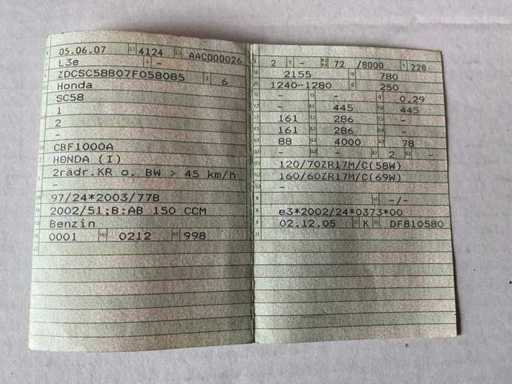 05.06.07 4124 AAC000026
L3e -
ZDCSC58B07F058085 6
Honda
SC58
1
2
-
CBF1000A
HONDA (I)
2rädr.KR o. BW > 45 km/h
-
97/24*2003/77B
2002/51;B:AB 150 CCM
Benzin
0001 0212 998
2 - 72 /8000 228
2155 780
1240-1280 250
- - - 0.29
- 445 445
161 286 -
161 286 -
88 4000 78
- - 2 -
120/70ZR17M/C(58W)
160/60ZR17M/C(69W)
-
-/-
e3*2002/24*0373*00
02.12.05 K DF810580